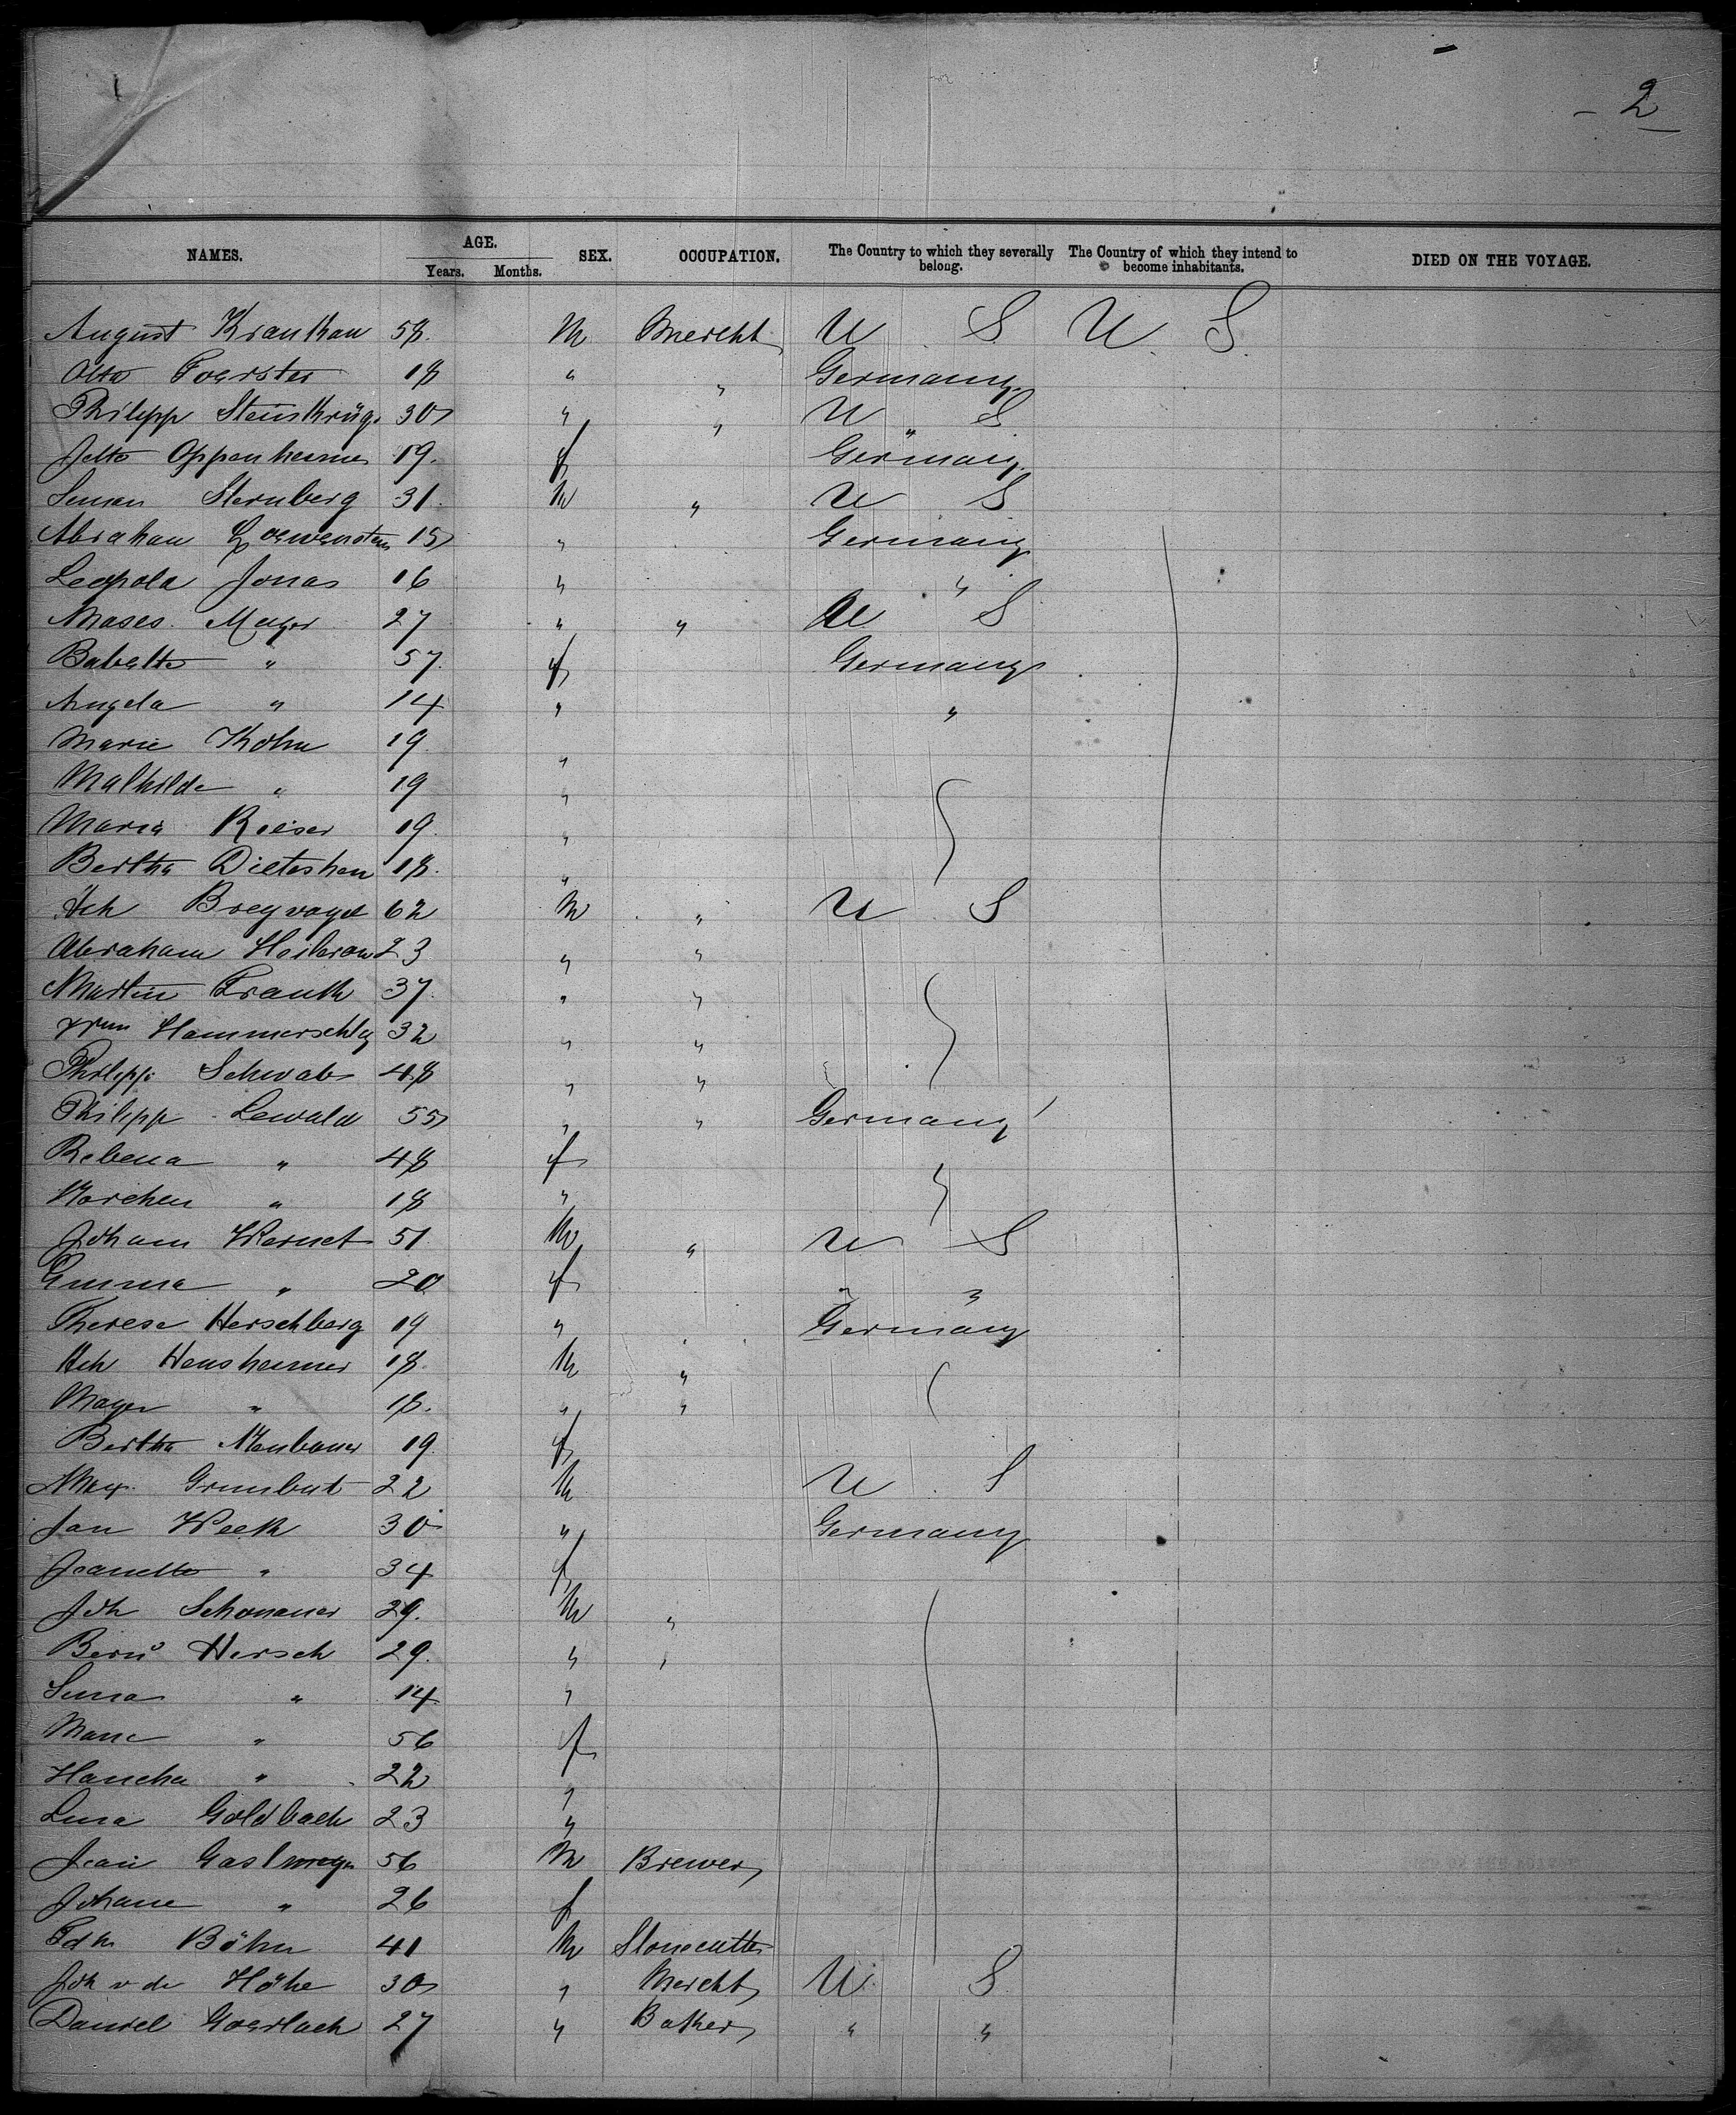 - 2
NAMES. AGE. SEX. OCCUPATION. The Country to which they severally belong. The Country of which they intend to become inhabitants. DIED ON THE VOYAGE.
Years. Months.
August Krauthau 58. M Mercht U S U. S.
Otto Foerster 18 " " Germany
Philipp 30 " " U " S
Oppenheimer 19. f Germany
Simon Sternberg 31. M " U S
Abraham Loewenstein 15 " Germany
Leopold Jonas 16 " "
Moses Mayer 27 " " U S
Babette " 57. f Germany
Angela " 14 " "
Marie Kohn 19 "
Mathilde " 19 "
Maria Rieser 19. "
Bertha 18. "
Hch 62 M " U S
Abraham 23 " "
Martin Frank 37. " "
Hammerschlg 32 " "
Philipp Schwab 48 " "
Philipp Lewald 55 " " Germany
" 48 f
" 18 "
Johann Wernet 51 M " U S
Emma " 20 f " "
Therese Herschberg 19 " Germany
Hch 18. M "
Mayer " 18. " "
Bertha Neubauer 19. f
Max Grunbut 22 M U S
Jan Week 30 " Germany
Jeanette " 34 f
Joh Schonauer 29. M "
Bernd Hersch 29. " "
" 14 "
" 56 f
" 22 "
Lina Goldbach 23 "
Jean 56 M Brewer
Johane " 26 f
Böhm 41 M Stonecutter
Joh v de Höhe 30 " Mercht U. S
Daniel Goerlach 27 " Baker " "